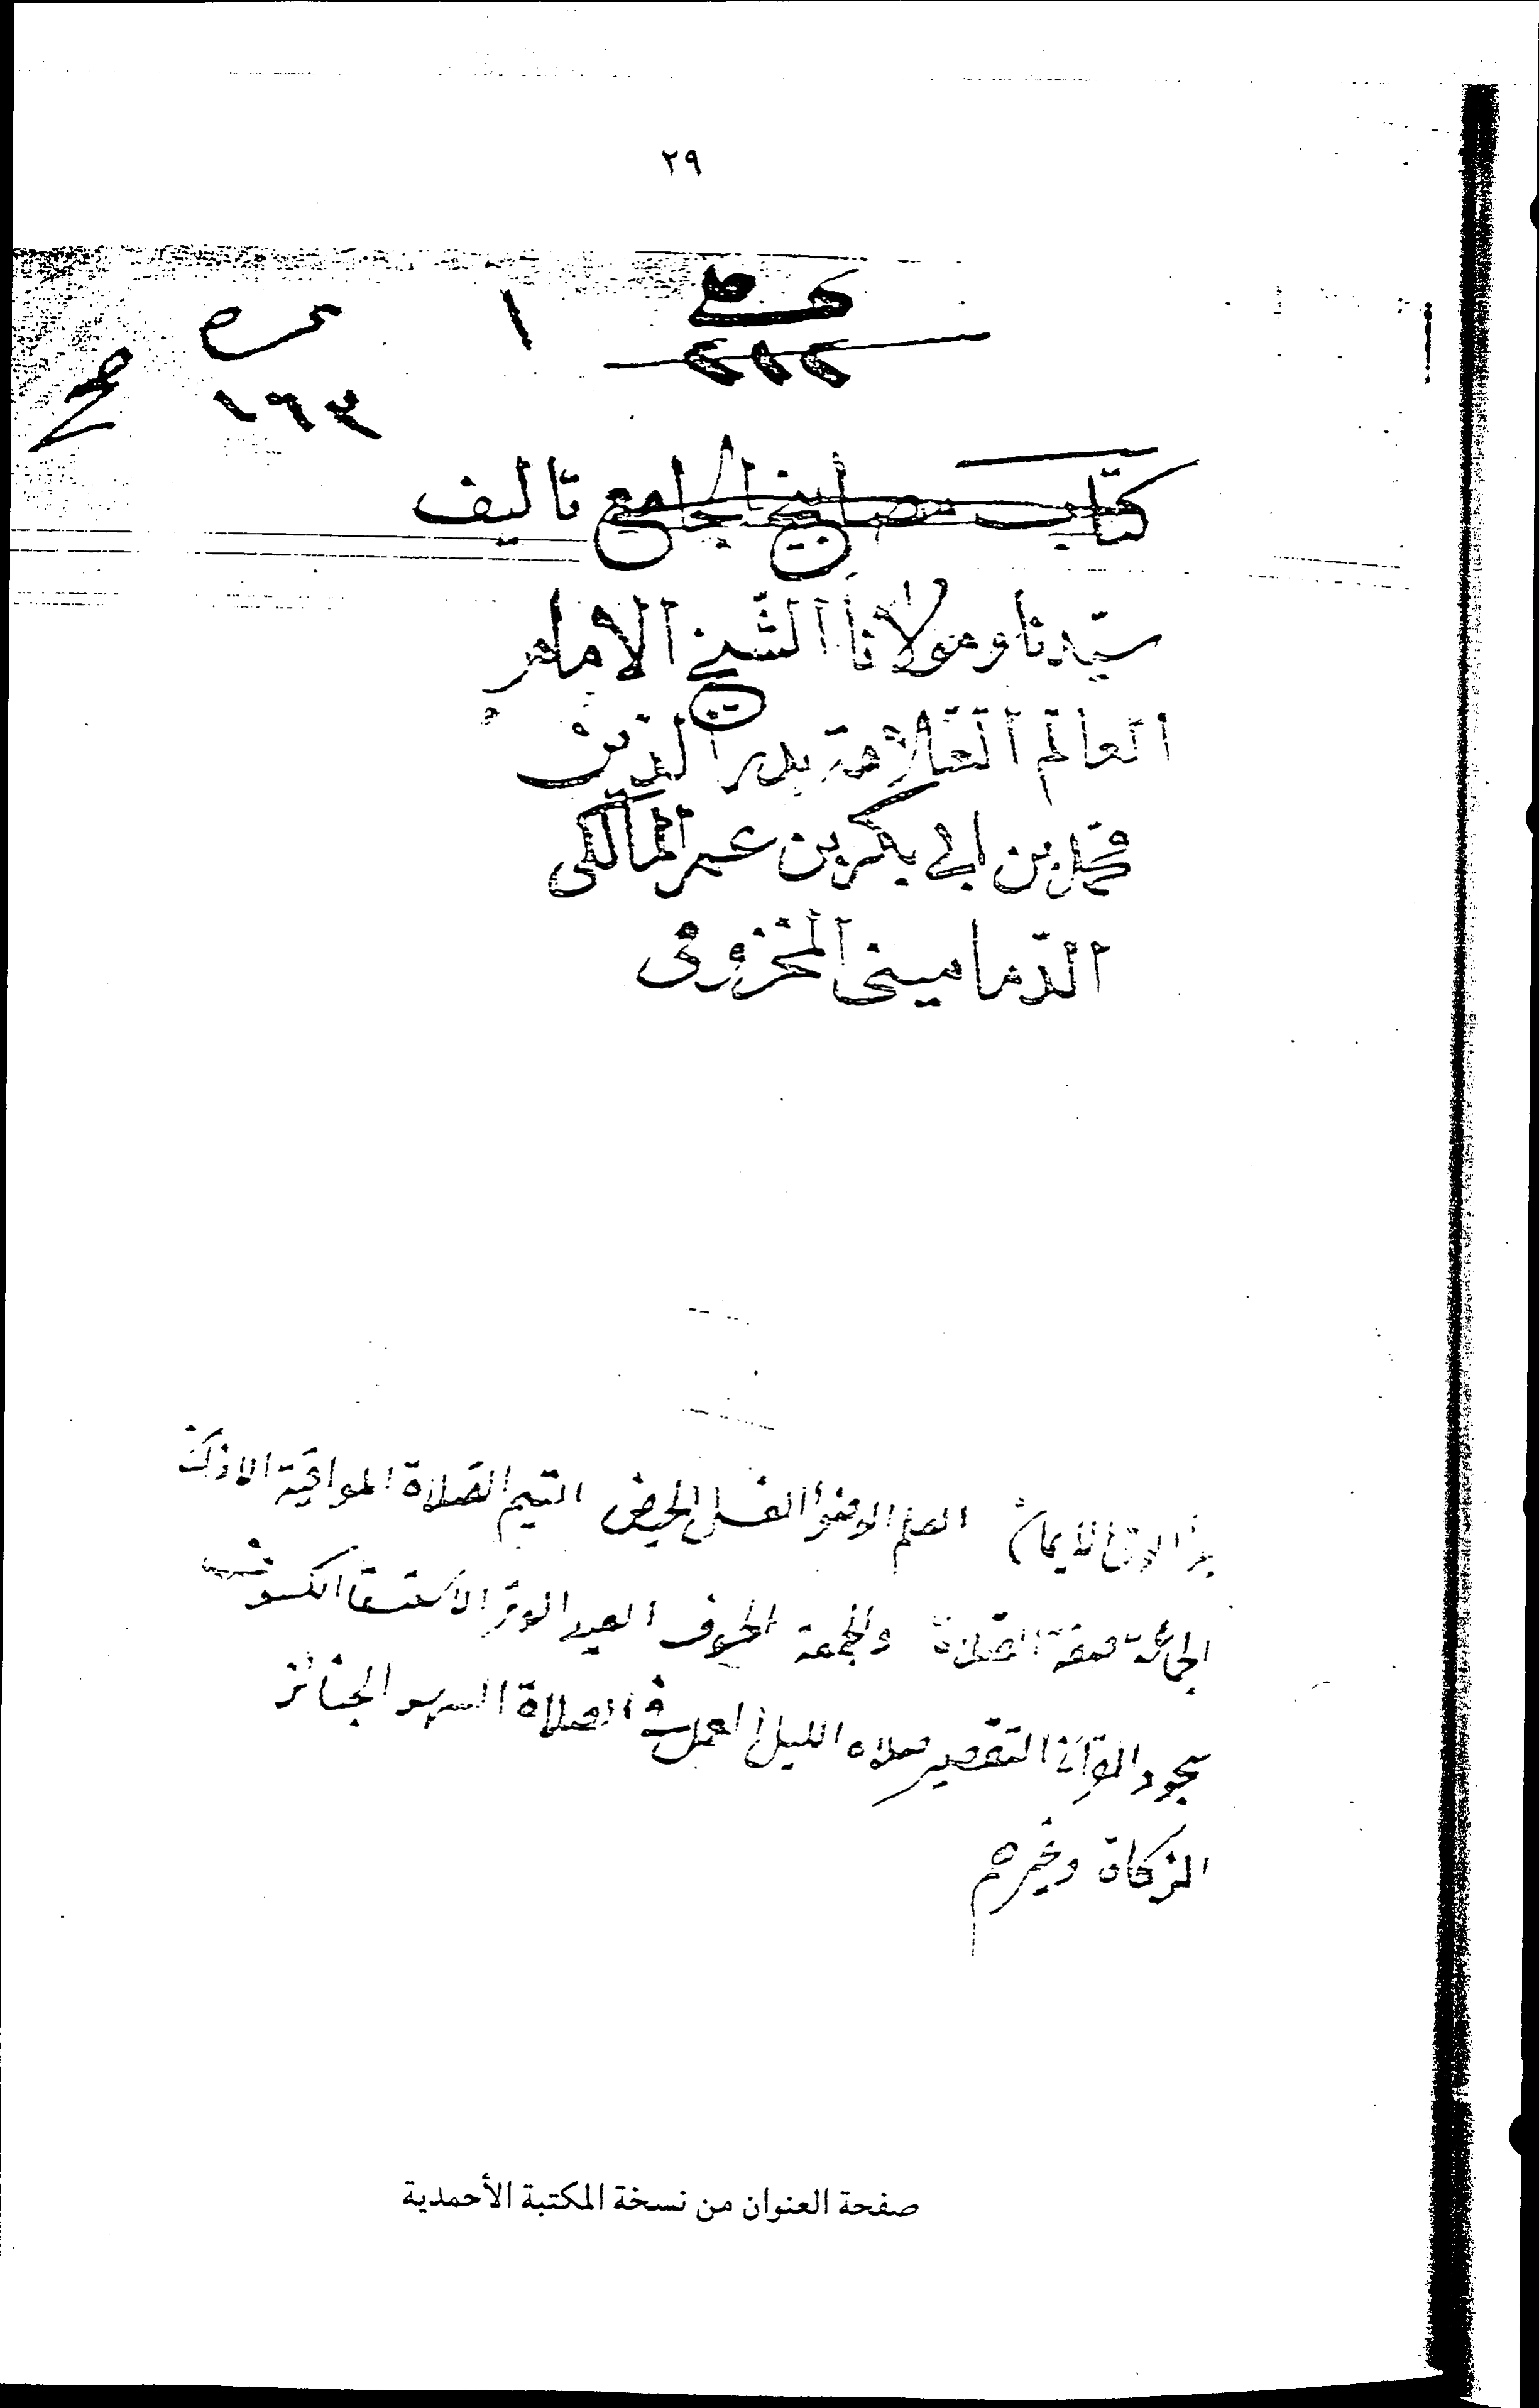 ٢٩
١
١٦٣
كتاب مصابيح الجامع تاليف
سيدنا ومولانا الشيخ الامام
العالم العلامة بدر الدين
محمد بن ابي بكر بن عمر المالكى
الدمامينى المخزومى
الايمان العلم الوضوء الغسل الحيض التيم الصلاة المواقية الاذان
صفة الصلاة والجمعة الخوف العيد الوتر الاستسقا الكسوف
سجود القرآن التقصير صلاه الليل العمل في الصلاة السهو الجنائز
الزكاة وغيرهم
صفحة العنوان من نسخة المكتبة الأحمدية